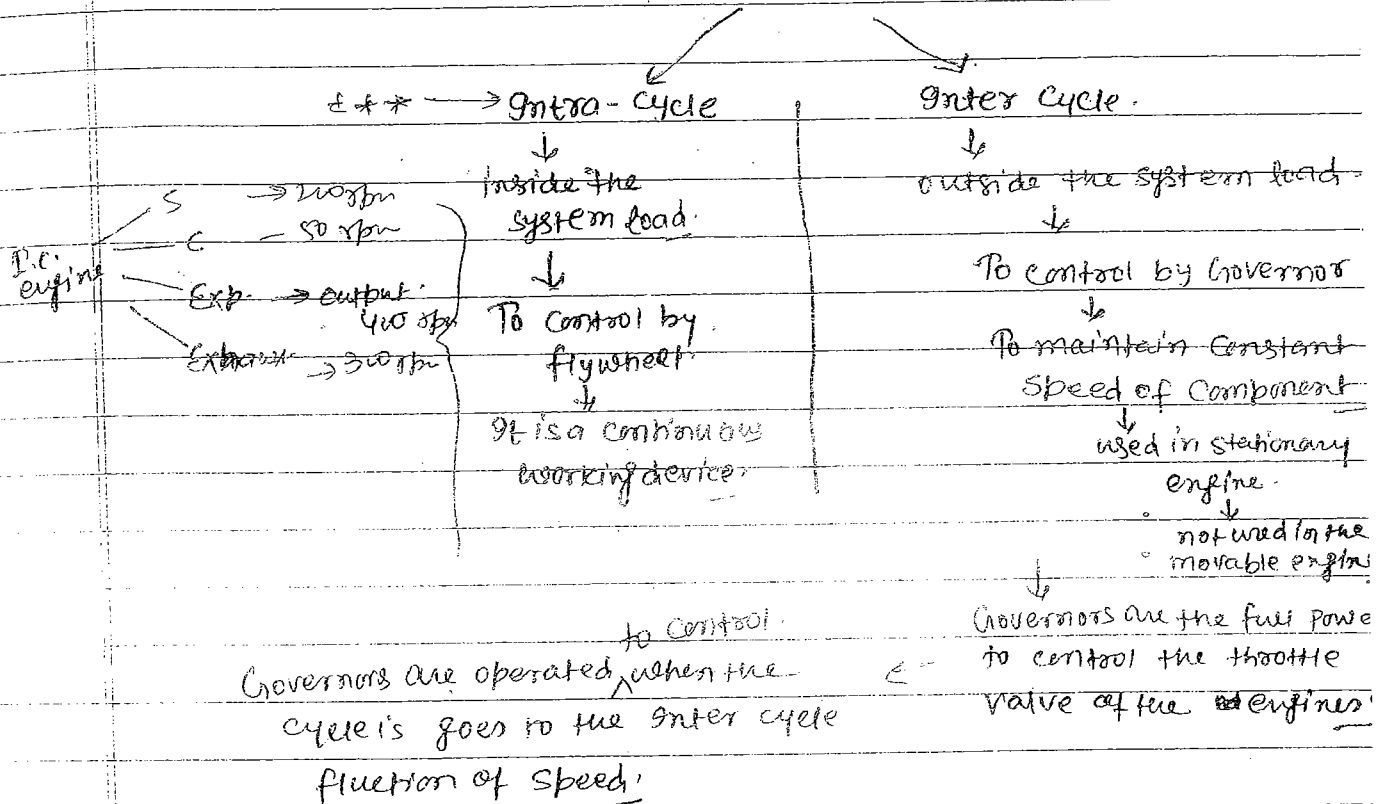 *** → Intra-Cycle
↓
inside the
system load.
↓
To control by
flywheel.
↓
It is a continuous
working device.
I.C.
engine
S → 200 rpm
C - 50 rpm
Exp. → output.
400 rpm
Exhaust → 300 rpm
Inter Cycle.
↓
outside the system load.
↓
To control by Governor
↓
To maintain Constant
Speed of Component
↓
used in stationary
engine.
↓
not used in the
movable engin
↓
Governors are the full powe
to control the throttle
valve of the engines.
to control
Governors are operated when the
cycle is goes to the Inter cycle
fluction of speed.